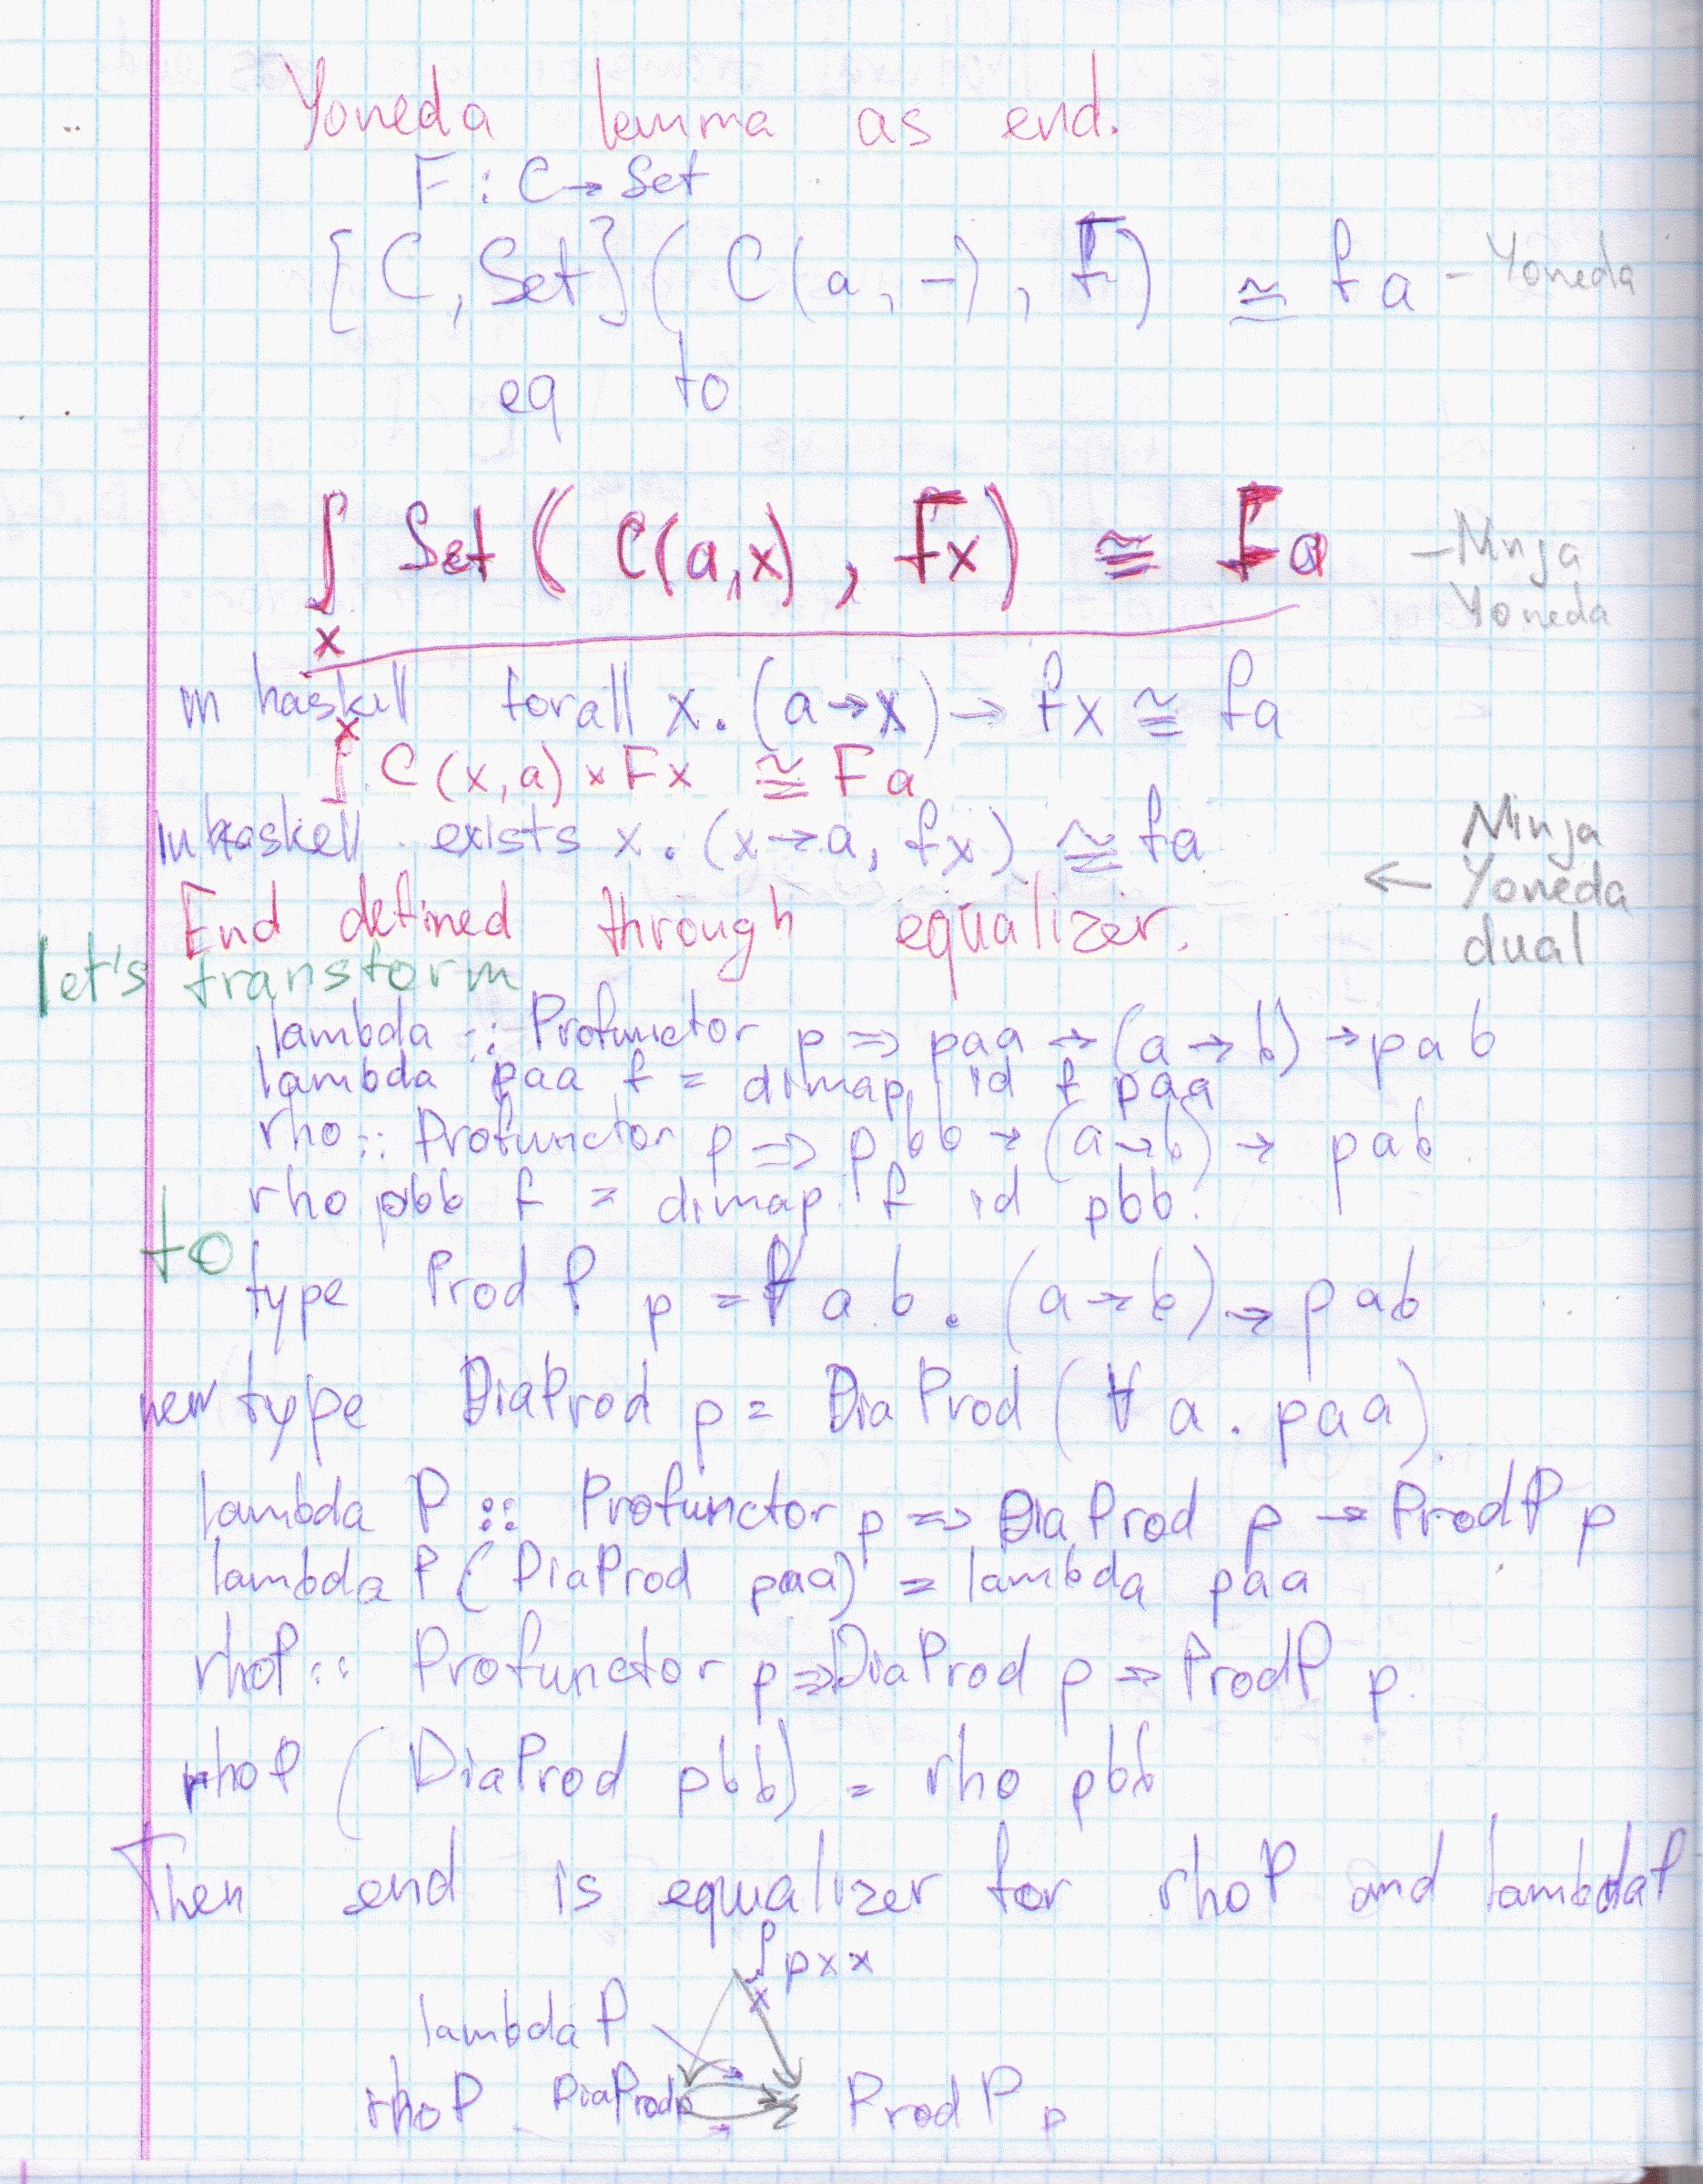 Yoneda lemma as end.
F : C → Set
[C, Set] ( C(a, –), F ) ≅ f a – Yoneda
eq to
∫ Set ( C(a,x) , Fx ) ≅ Fa – Ninja
x
Yoneda
in haskell forall x. (a→x) → fx ≅ fa
x
∫ C (x, a) × Fx ≅ F a
in haskell exists x. (x→a, fx) ≅ fa
← Ninja Yoneda dual
End defined through equalizer.
let's transform
lambda :: Profunctor p ⇒ paa → (a → b) → p a b
lambda paa f = dimap id f paa
rho :: Profunctor p ⇒ p bb → (a→b) → pab
rho pbb f = dimap f id pbb.
to
type Prod P p = ∀ a b. (a → b) → p a b
newtype DiaProd p = DiaProd (∀ a. paa).
lambda P :: Profunctor p ⇒ Dia Prod p → ProdP p
lambda P ( DiaProd paa) = lambda paa
rhoP :: Profunctor p ⇒ DiaProd p → ProdP p.
rhoP ( DiaProd pbb) = rho pbb
Then end is equalizer for rhoP and lambdaP
∫ p x x
x
lambda P
rho P DiaProd p Prod P p